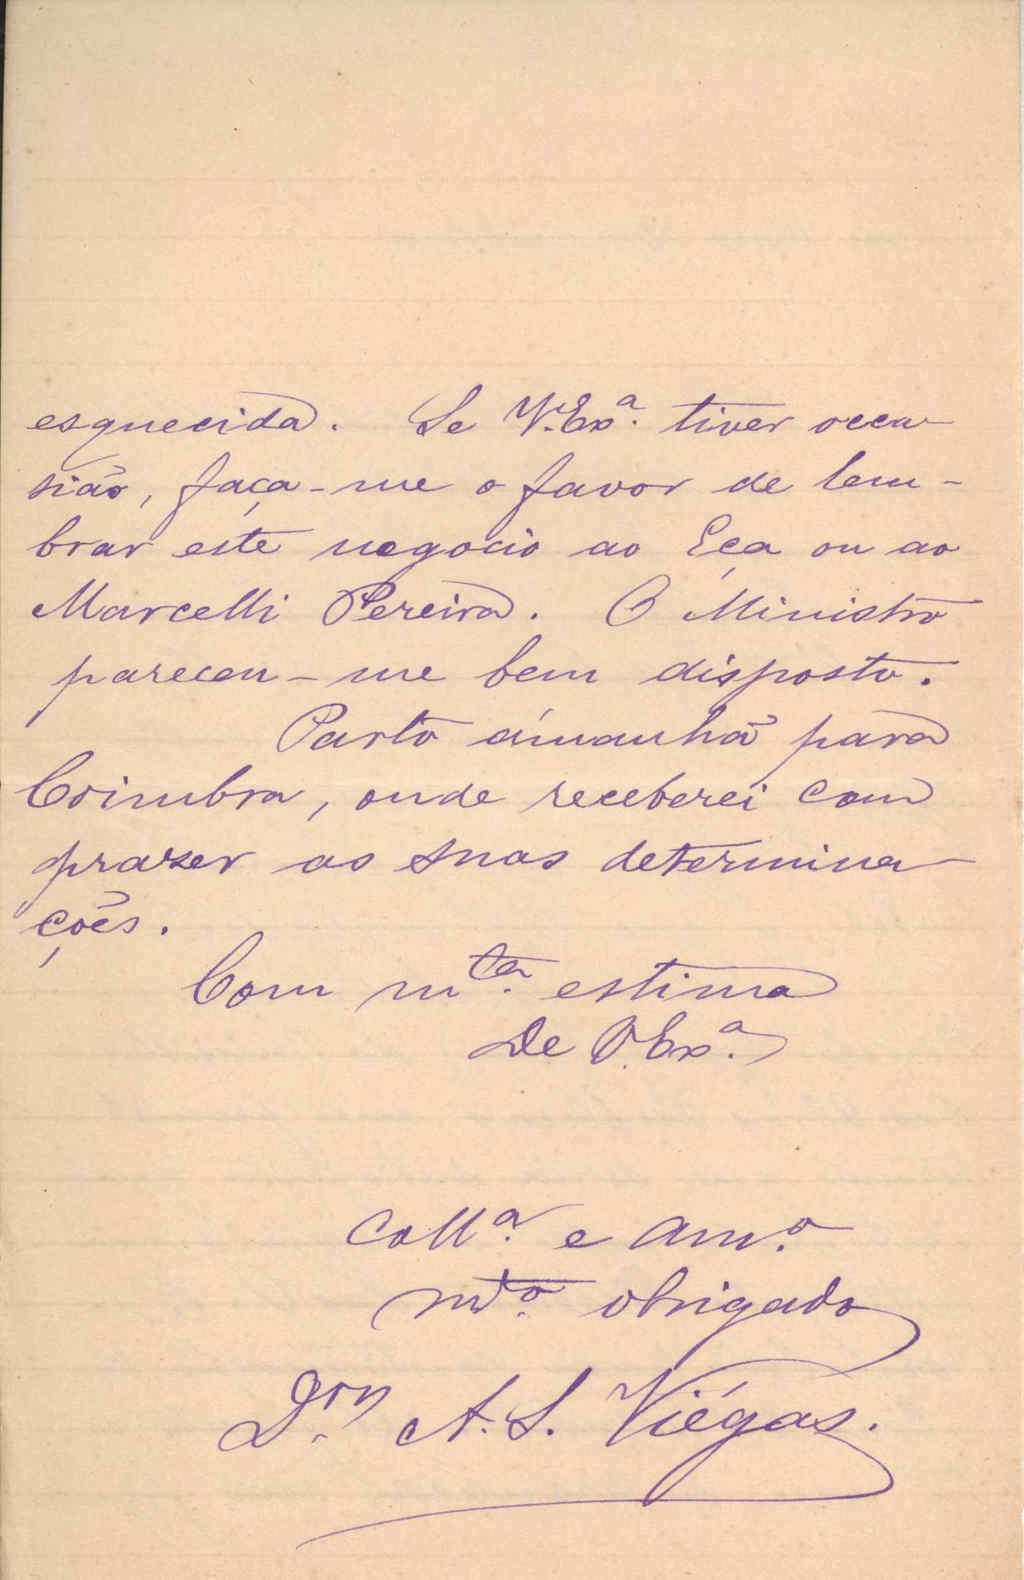 esquecida. Se V. Exª. tiver occa-
sião, faça-me o favor de lem-
brar este negocio ao Eça ou ao
Marcelli Pereira. O Ministro
pareceu-me bem disposto.
Parto ámanhã para
Coimbra, onde receberei com
prazer as suas determina-
ções.
Com mᵗᵃ. estima
De V. Exª.
Collª. e Amº.
mᵗᵒ. obrigado
A. S. Viégas.